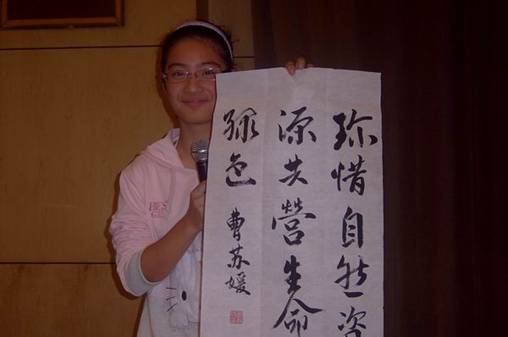 珍惜自然资
源共營生命
绿色
曹苏媛